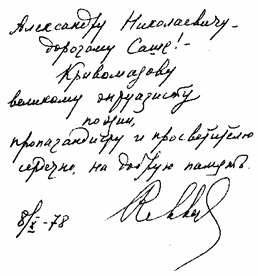 Александру Николаевичу -
дорогому Саше! -
Кривомазову
великому энтузиасту
поэзии,
пропагандисту и просветителю
сердечно, на добрую память.
8/X -78